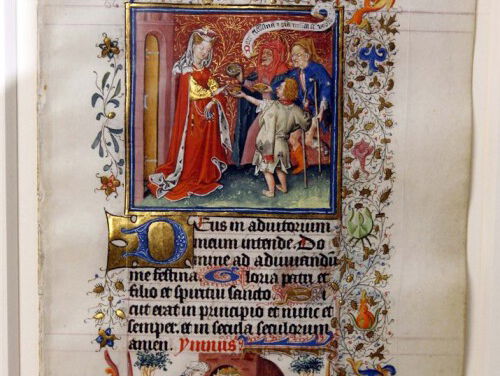 Deus in adiutorium
meum intende. Do
mine ad adiuuandū
me festina. Gloria patri et
filio et spiritui sancto. Si
cut erat in principio et nunc et
semper. et in secula seculorum
amen. ymnus